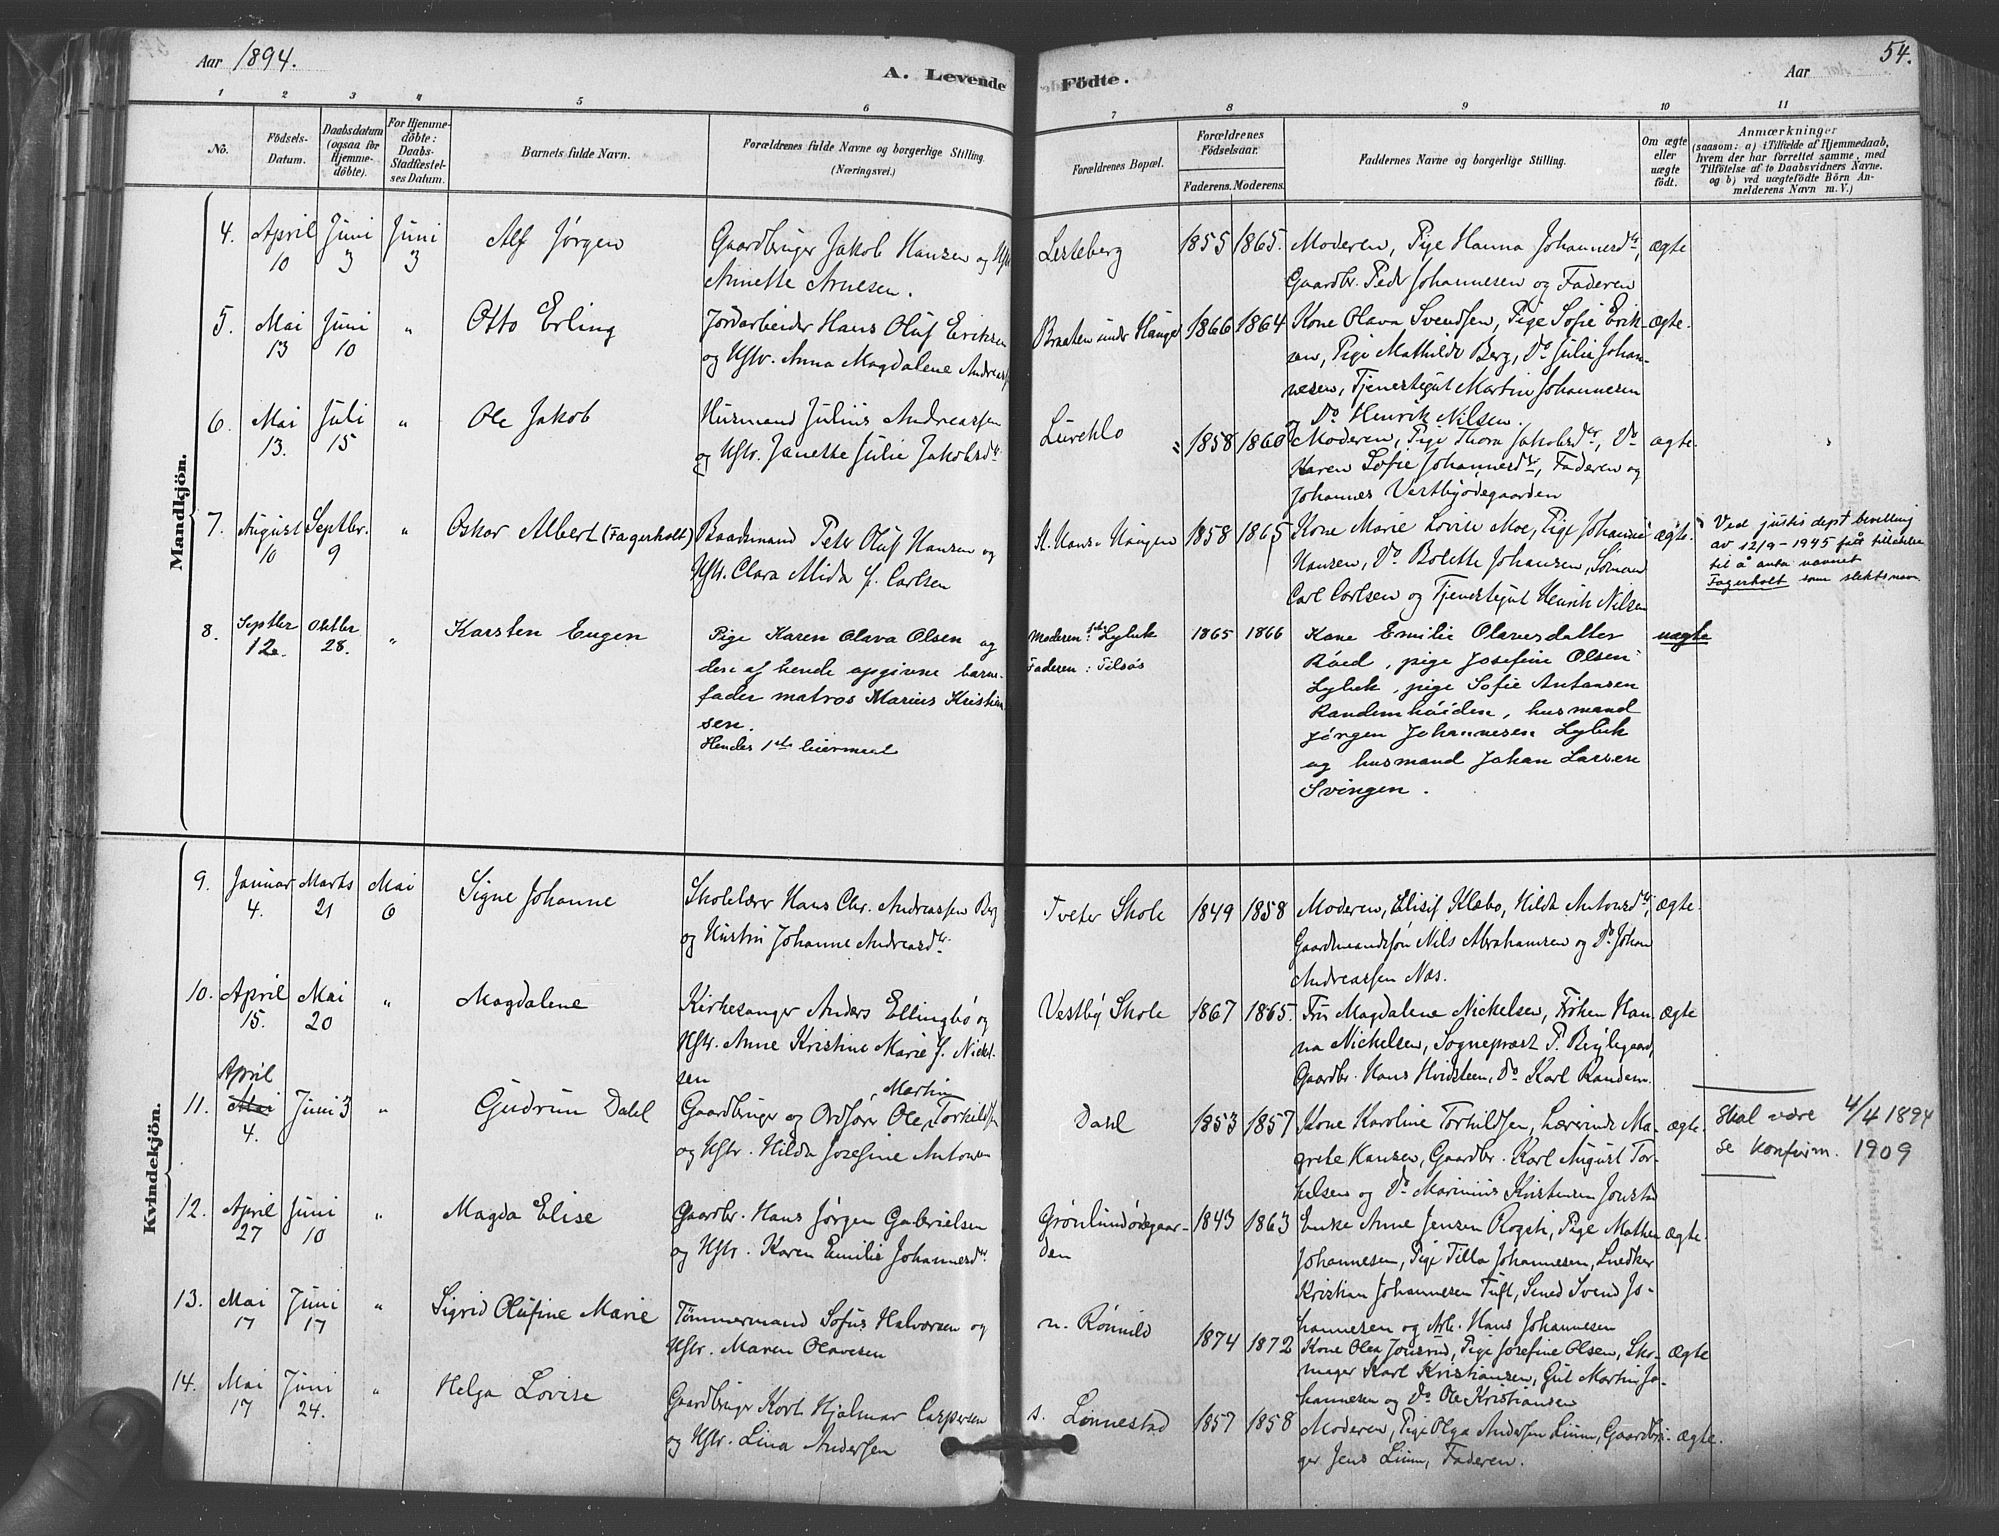 Aar 1894.
A. Levende
Födte.
Aar
54.
1 2 3 4 5 6 7 8 9 10 11
No.
Födsels-
Datum.
Daabsdatum
(ogsaa for
Hjemme-
döbte).
For Hjemme-
döbte:
Daabs-
Stadfæstel-
ses Datum.
Barnets fulde Navn.
Forældrenes fulde Navne og borgerlige Stilling.
(Næringsvei.)
Forældrenes Bopæl.
Forældrenes
Födselsaar.
Faderens. Moderens.
Faddernes Navne og borgerlige Stilling.
Om ægte
eller
uægte
født.
Anmærkninger
(saasom: a) i Tilfælde af Hjemmedaab,
hvem der har forrettet samme, med
Tilföielse af to Daabsvidners Navne.
og b) ved uægtefödte Börn An-
melderens Navn m. V.)
Mandkjön.
4. April 10 Juni 3 Juni 3
Alf Jørgen
Gaardbruger Jakob Hansen og Hstr
Annette Arnesen.
Lesteberg
1855 1865.
Moderen, Pige Hanna Johannesdtr,
Gaardbr. Peder Johannesen og Faderen
ægte
5. Mai 13 Juni 10 "
Otto Erling
Jordarbeider Hans Oluf Eriksen
og Hstr. Anna Magdalene Andreas
Braaten under Haugen
1866 1864
Kone Olava Svendsen, Pige Sofie Erik-
sen, Pige Mathilde Berg, Do Julie Johan-
nesen, Tjenestegut Martin Johannesen
og Do Henrik Nilsen.
ægte.
6. Mai 13. Juli 15 "
Ole Jakob
Husmand Julius Andreassen
og Hstr. Janette Julie Jakobsdtr.
Lureklo
1858 1860
Moderen, Pige Thora Jakobsdtr, Do
Karen Sofie Johannesdtr, Faderen og
Johannes Vestbyødegaarden
ægte.
7. August 10 Septbr. 9 "
Oskar Albert (Fagerholt)
Baadsmand Peter Oluf Hansen og
Hstr. Clara Mida f. Carlsen
St. Hans Haugen
1858 1865
Kone Marie Lovise Moe, Pige Johanne
Hansen, Do Bolette Johansen, Sømand
Carl Carlsen og Tjenestegut Henrik Nilsen
ægte.
Ved justis dept bevilling
av 12/9-1945 fått tillatelse
til å anta navnet
Fagerholt som slektsnavn
8. Septbr 12. Oktbr 28. "
Karsten Eugen
Pige Karen Olava Olsen og
den af hende opgivne barne-
fader matros Marius Kristian-
sen.
Hendes 1ste leiermaal
Moderen: Lybek
Faderen: Tilsøs
1865 1866
Kone Emilie Olavesdatter
Röed, pige Josefine Olsen
Lybek, pige Sofie Antonsen
Randemhöiden, husmand
Jörgen Johannesen Lybek
og husmand Johan Larsen
Svingen.
uægte
Kvindekjön.
9. Januar 4. Marts 21 Mai 6
Signe Johanne
Skolelærer Hans Chr. Andreassen Berg
og Hustru Johanne Andreasdtr.
Tveter Skole
1849 1858
Moderen, Elisif Klebo, Hilda Antonsdtr,
Gaardmandssøn Nils Abrahamsen og Do Johan
Andreassen Næs.
ægte.
10. April 15. Mai 20 "
Magdalene
Kirkesanger Anders Ellingbø og
Hstr. Anne Kristine Marie f. Nickel-
sen
Vestby Skole
1867 1865.
Fru Magdalene Nickelsen, Frøken Han-
na Nickelsen, Sognepræst P. Bryhgaard,
Gaardbr. Hans Hvidsteen, Do Karl Randem.
ægte
11. April Mai 4. Juni 3 "
Gudrun Dahl
Gaardbruger og Ordfører Ole Martin Torkildsen
og Hstr. Hilda Josefine Antonsen
Dahl
1853 1857
Kone Karoline Torkildsen, Lærerinde Ma-
grete Hansen, Gaardbr. Karl August Tor-
kelsen og Do Marinius Kristensen Jonstad
ægte.
Skal være 4/4 1894
se konfirm. 1909
12. April 27 Juni 10 "
Magda Elise
Gaardbr. Hans Jørgen Gabrielsen
og Hstr. Karen Emilie Johannesdtr.
Grønlundødegaar-
den
1843 1863
Enke Anne Jensen Rogsti, Pige Mathea
Johannesen, Pige Tilla Johannesen, Snedker
Kristian Johannesen Tuft, Smed Svend Jo-
hannesen og Arb. Hans Johannesen
ægte.
13. Mai 17 Juni 17 "
Sigrid Olufine Marie
Tømmermand Sofus Halvorsen og
Hstr. Maren Olavesen
n. Rønnild
1874 1872
Kone Olea Jonsrud, Pige Josefine Olsen, Sko-
mager Karl Kristiansen, Gut Martin Jo-
hannesen og Do Ole Kristiansen
ægte
14. Mai 17 Juni 24. "
Helga Lovise
Gaardbruger Karl Hjalmar Caspersen
og Hstr. Lina Andersen
s. Linnestad
1857 1858
Moderen, Pige Olga Andersen Linni, Gaardbru-
ger Jens Linni, Faderen.
ægte.